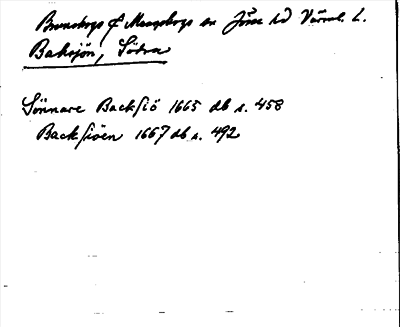 Brunskogs f Mangskogs sn Jösse hd Värml. L.
Baksjön, Södra
Sönnare Backsiö 1665 db s. 458
Backsiöen 1667 db s. 492